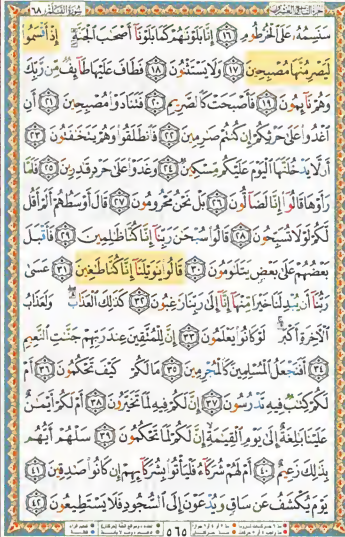 سُورَةُ القَلَمِ ١٦٨
سَنَسِمُهُۥ عَلَى ٱلْخُرْطُومِ ١٦ إِنَّا بَلَوْنَٰهُمْ كَمَا بَلَوْنَآ أَصْحَٰبَ ٱلْجَنَّةِ إِذْ أَقْسَمُوا۟
لَيَصْرِمُنَّهَا مُصْبِحِينَ ١٧ وَلَا يَسْتَثْنُونَ ١٨ فَطَافَ عَلَيْهَا طَآئِفٌ مِّن رَّبِّكَ
وَهُمْ نَآئِمُونَ ١٩ فَأَصْبَحَتْ كَٱلصَّرِيمِ ٢٠ فَتَنَادَوْا۟ مُصْبِحِينَ ٢١ أَنِ
ٱغْدُوا۟ عَلَىٰ حَرْثِكُمْ إِن كُنتُمْ صَٰرِمِينَ ٢٢ فَٱنطَلَقُوا۟ وَهُمْ يَتَخَٰفَتُونَ ٢٣
أَن لَّا يَدْخُلَنَّهَا ٱلْيَوْمَ عَلَيْكُم مِّسْكِينٌ ٢٤ وَغَدَوْا۟ عَلَىٰ حَرْدٍ قَٰدِرِينَ ٢٥ فَلَمَّا
رَأَوْهَا قَالُوٓا۟ إِنَّا لَضَآلُّونَ ٢٦ بَلْ نَحْنُ مَحْرُومُونَ ٢٧ قَالَ أَوْسَطُهُمْ أَلَمْ أَقُل
لَّكُمْ لَوْلَا تُسَبِّحُونَ ٢٨ قَالُوا۟ سُبْحَٰنَ رَبِّنَآ إِنَّا كُنَّا ظَٰلِمِينَ ٢٩ فَأَقْبَلَ
بَعْضُهُمْ عَلَىٰ بَعْضٍ يَتَلَٰوَمُونَ ٣٠ قَالُوا۟ يَٰوَيْلَنَآ إِنَّا كُنَّا طَٰغِينَ ٣١ عَسَىٰ
رَبُّنَآ أَن يُبْدِلَنَا خَيْرًا مِّنْهَآ إِنَّآ إِلَىٰ رَبِّنَا رَٰغِبُونَ ٣٢ كَذَٰلِكَ ٱلْعَذَابُ وَلَعَذَابُ
ٱلْءَاخِرَةِ أَكْبَرُ لَوْ كَانُوا۟ يَعْلَمُونَ ٣٣ إِنَّ لِلْمُتَّقِينَ عِندَ رَبِّهِمْ جَنَّٰتِ ٱلنَّعِيمِ
٣٤ أَفَنَجْعَلُ ٱلْمُسْلِمِينَ كَٱلْمُجْرِمِينَ ٣٥ مَا لَكُمْ كَيْفَ تَحْكُمُونَ ٣٦ أَمْ
لَكُمْ كِتَٰبٌ فِيهِ تَدْرُسُونَ ٣٧ إِنَّ لَكُمْ فِيهِ لَمَا تَخَيَّرُونَ ٣٨ أَمْ لَكُمْ أَيْمَٰنٌ
عَلَيْنَا بَٰلِغَةٌ إِلَىٰ يَوْمِ ٱلْقِيَٰمَةِ إِنَّ لَكُمْ لَمَا تَحْكُمُونَ ٣٩ سَلْهُمْ أَيُّهُم
بِذَٰلِكَ زَعِيمٌ ٤٠ أَمْ لَهُمْ شُرَكَآءُ فَلْيَأْتُوا۟ بِشُرَكَآئِهِمْ إِن كَانُوا۟ صَٰدِقِينَ ٤١
يَوْمَ يُكْشَفُ عَن سَاقٍ وَيُدْعَوْنَ إِلَى ٱلسُّجُودِ فَلَا يَسْتَطِيعُونَ ٤٢
٥٦٥